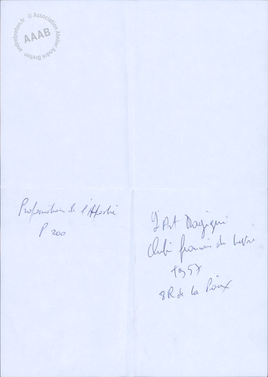 © Association Atelier André Breton
AAAB
Profanation de l'Hostie
P 200
L'Art Magique
Club français du Livre
1957
8 R de la Paix